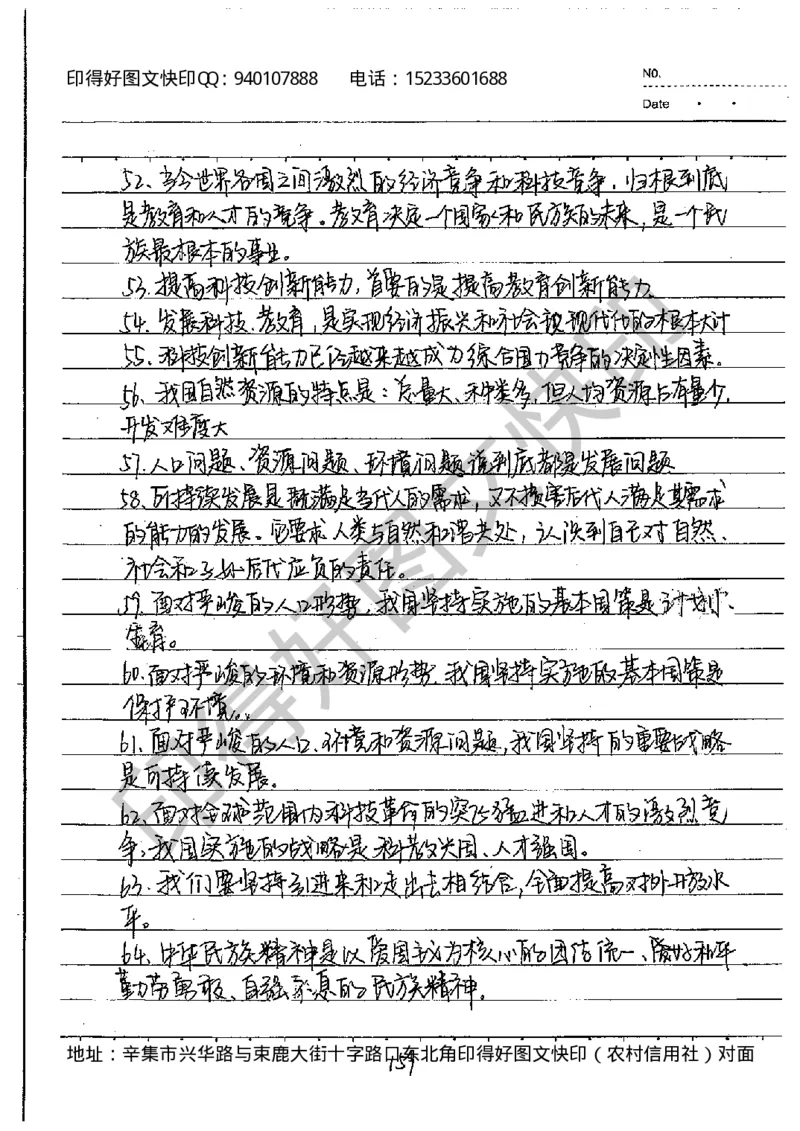 印得好图文快印QQ：940107888 电话：15233601688
No.
Date
52、当今世界各国之间激烈的经济竞争和科技竞争，归根到底
是教育和人才的竞争。教育决定一个国家和民族的未来，是一个民
族最根本的事业。
53、提高科技创新能力，首要的是提高教育创新能力
54、发展科技、教育，是实现经济振兴和社会现代化的根本大计
55、科技创新能力已经越来越成为综合国力竞争的决定性因素。
56、我国自然资源的特点是：总量大、种类多，但人均资源占有量少，
开发难度大
57、人口问题、资源问题、环境问题说到底都是发展问题
58、可持续发展是既满足当代人的需求，又不损害后代人满足其需求
的能力的发展。它要求人类与自然和谐共处，认识到自己对自然、
社会和子孙后代应负的责任。
59、面对严峻的人口形势，我国坚持实施的基本国策是计划
生育。
60、面对严峻的环境和资源形势，我国坚持实施的基本国策是
保护环境。
61、面对严峻的人口、环境和资源问题，我国坚持的重要战略
是可持续发展。
62、面对全球范围内科技革命的突飞猛进和人才的激烈竞
争，我国实施的战略是科教兴国、人才强国。
63、我们要坚持引进来和走出去相结合，全面提高对外开放水
平。
64、中华民族精神是以爱国主义为核心的团结统一、爱好和平
勤劳勇敢、自强不息的民族精神。
地址：辛集市兴华路与束鹿大街十字路口东北角印得好图文快印（农村信用社）对面
159
印得好图文快印